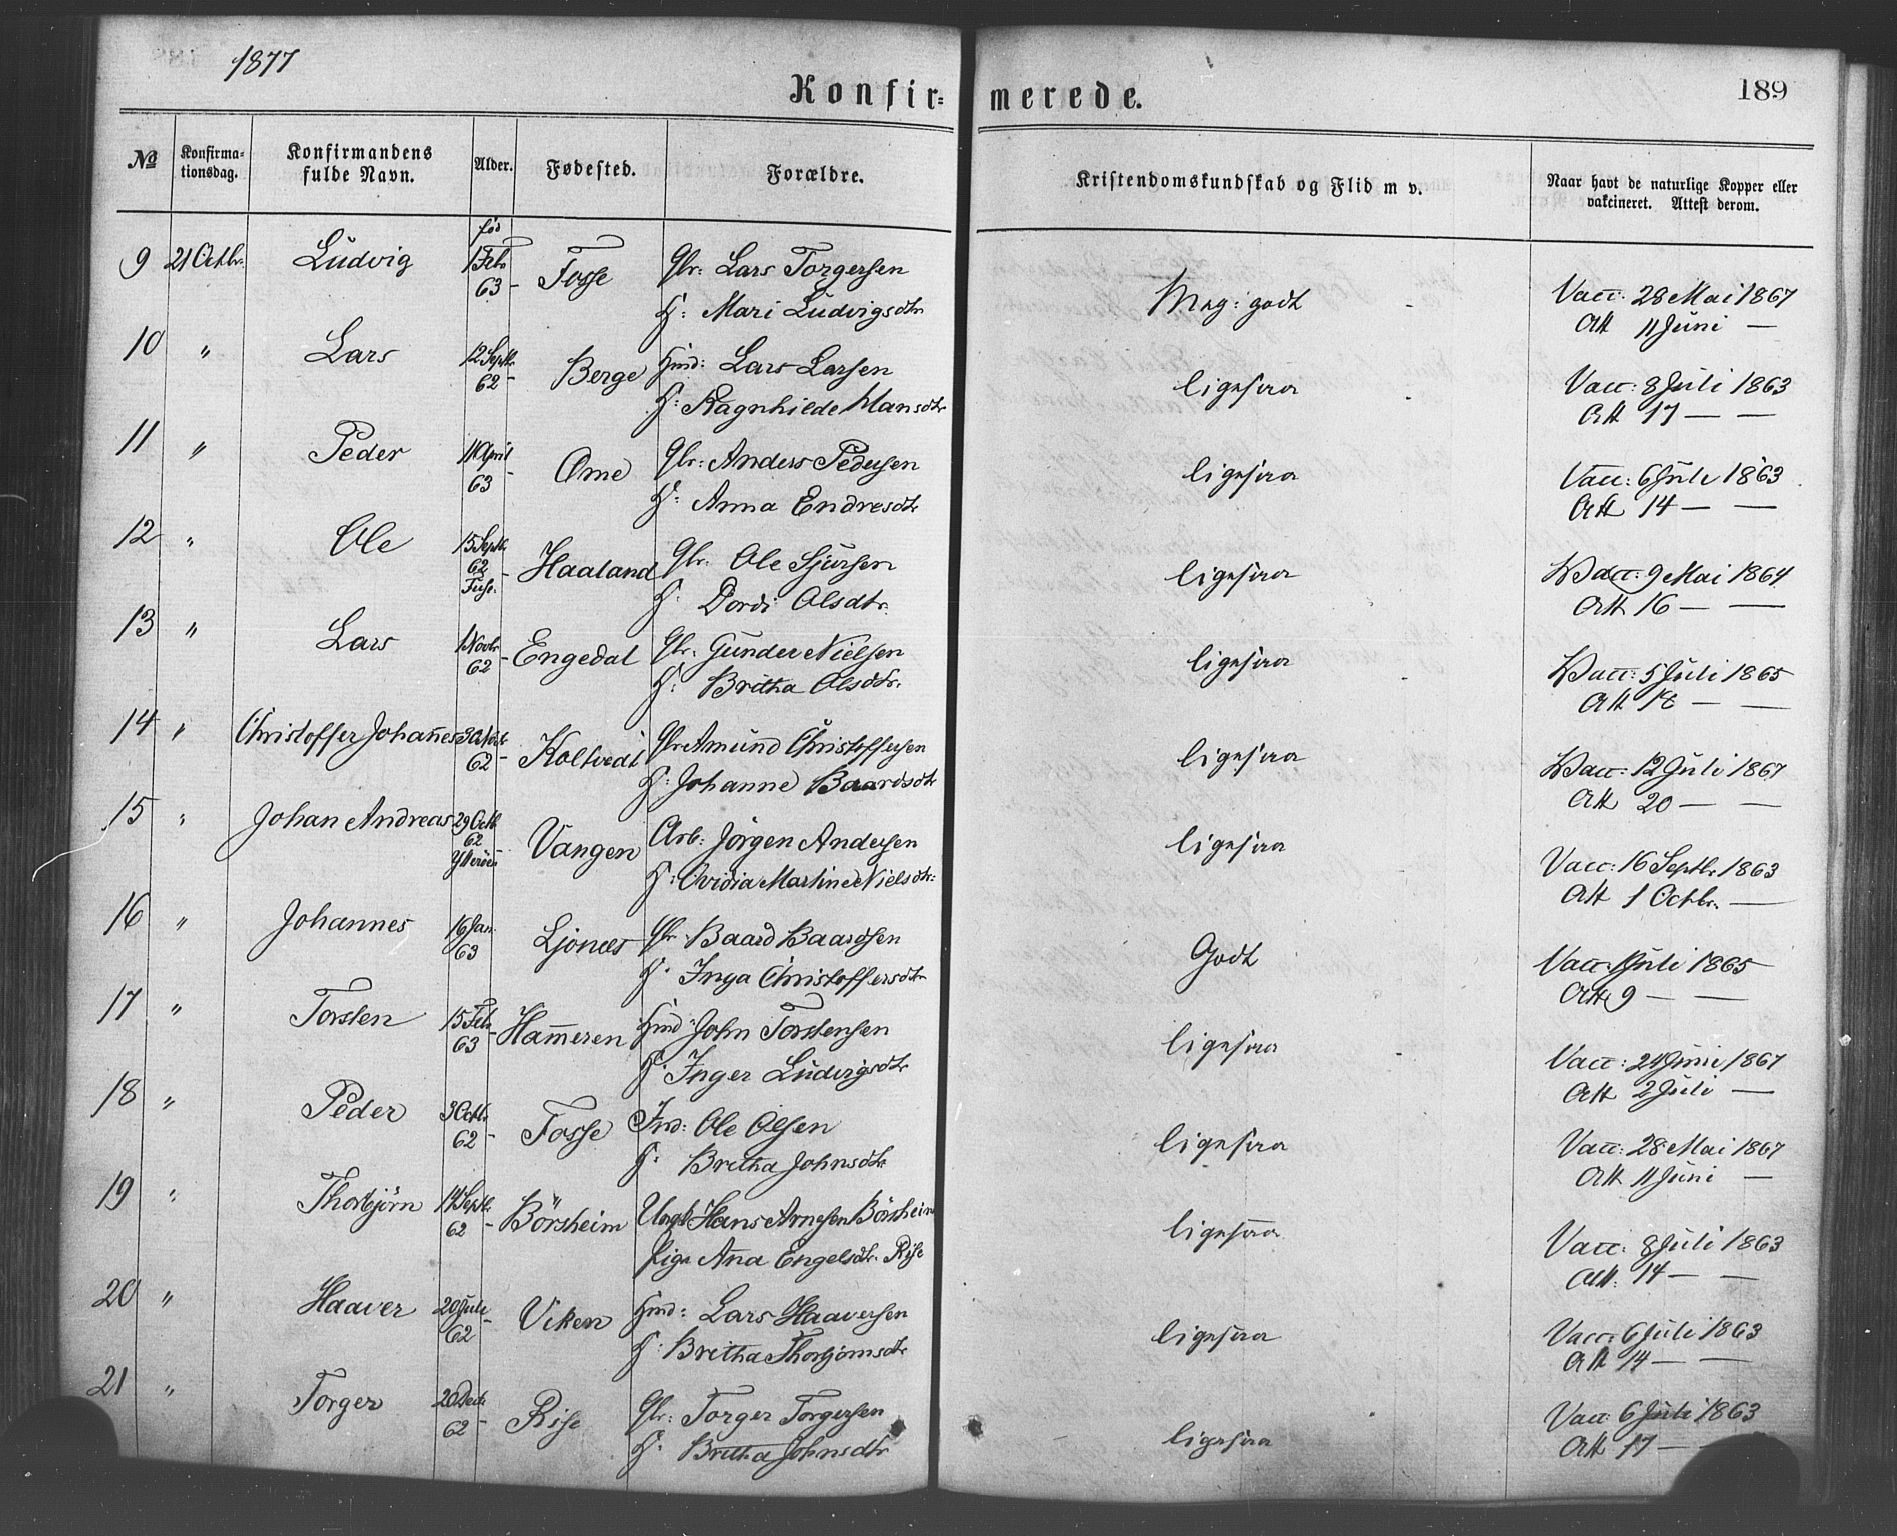 1877
Konfir=merede.
189
№ Konfirma=tionsdag. Konfirmandens fulde Navn. Alder. Fødested. Forældre. Kristendomskundskab og Flid m v. Naar havt de naturlige Kopper eller vakcineret. Attest derom.
fød
9 21 Octbr. Ludvig 1 Feb 63 - Fosse Gbr: Lars Torgersen
H: Mari Ludvigsdtr Meg: godt Vacc: 28 Mai 1867
Att 11 Juni —
10 " Lars 12 Septbr. 62 - Berge Hmd: Lars Larsen
H: Ragnhilde Hansdtr ligesaa Vacc: 8 Juli 1863
Att 17 — —
11 " Peder 11 April 63 - Ome Gbr: Anders Pedersen
H: Anna Endresdtr ligesaa Vacc: 6 Juli 1863
Att 14 — —
12 " Ole 15 Septbr. 62 - Haaland Gbr. Ole Sjursen
H. Dordi Olsdtr. ligesaa Vacc: 9 Mai 1864
Att 16 — —
13 " Lars 1 Novbr 62 - Engedal Gbr. Gunder Nielsen
H: Britha Olsdtr. ligesaa Vacc: 5 Juli 1865
Att 18 — —
14 " Christoffer Johannes 62 - Koltvedt Gbr Amund Christoffersen
H: Johanne Baardsdtr ligesaa Vacc: 12 Juli 1867
Att 20 — —
15 " Johan Andreas 29 Octb. 62 Ytterøen Vangen Arb: Jörgen Andersen
H: Ovidia Martine Nielsdtr: ligesaa Vacc: 16 Septbr. 1863
Att 1 Octbr. —
16 " Johannes 16 Jan. 63 Ljones Gbr. Baard Baardsen
H. Inga Christoffersdtr Godt Vacc: 1 Juli 1865
Att 9 — —
17 " Torsten 15 Feb. 63 - Hammeren Hmd: John Torstensen
H. Inger Ludvigsdtr ligesaa Vacc: 24 Juni 1867
Att 2 Juli —
18 " Peder 3 Octbr 62 - Fosse Ind: Ole Olsen
H. Britha Johnsdtr ligesaa Vacc: 28 Mai 1867
Att 11 Juni —
19 " Thorbjörn 14 Septbr. 62 - Börsheim Ungk Hans Arnesen Börsheim
Pige Anna Engelsdtr. Rise ligesaa Vacc: 8 Juli 1863
Att. 14 — —
20 " Haaver 20 Juli 62 - Viken Hmd: Lars Haaversen
H. Britha Thorbjörnsdtr ligesaa Vacc: 6 Juli 1863
Att 14 — —
21 " Torger 62 - Rise Gbr: Torger Torgersen
H. Britha Johnsdtr ligesaa Vacc: 6 Juli 1863
Att 17 — —